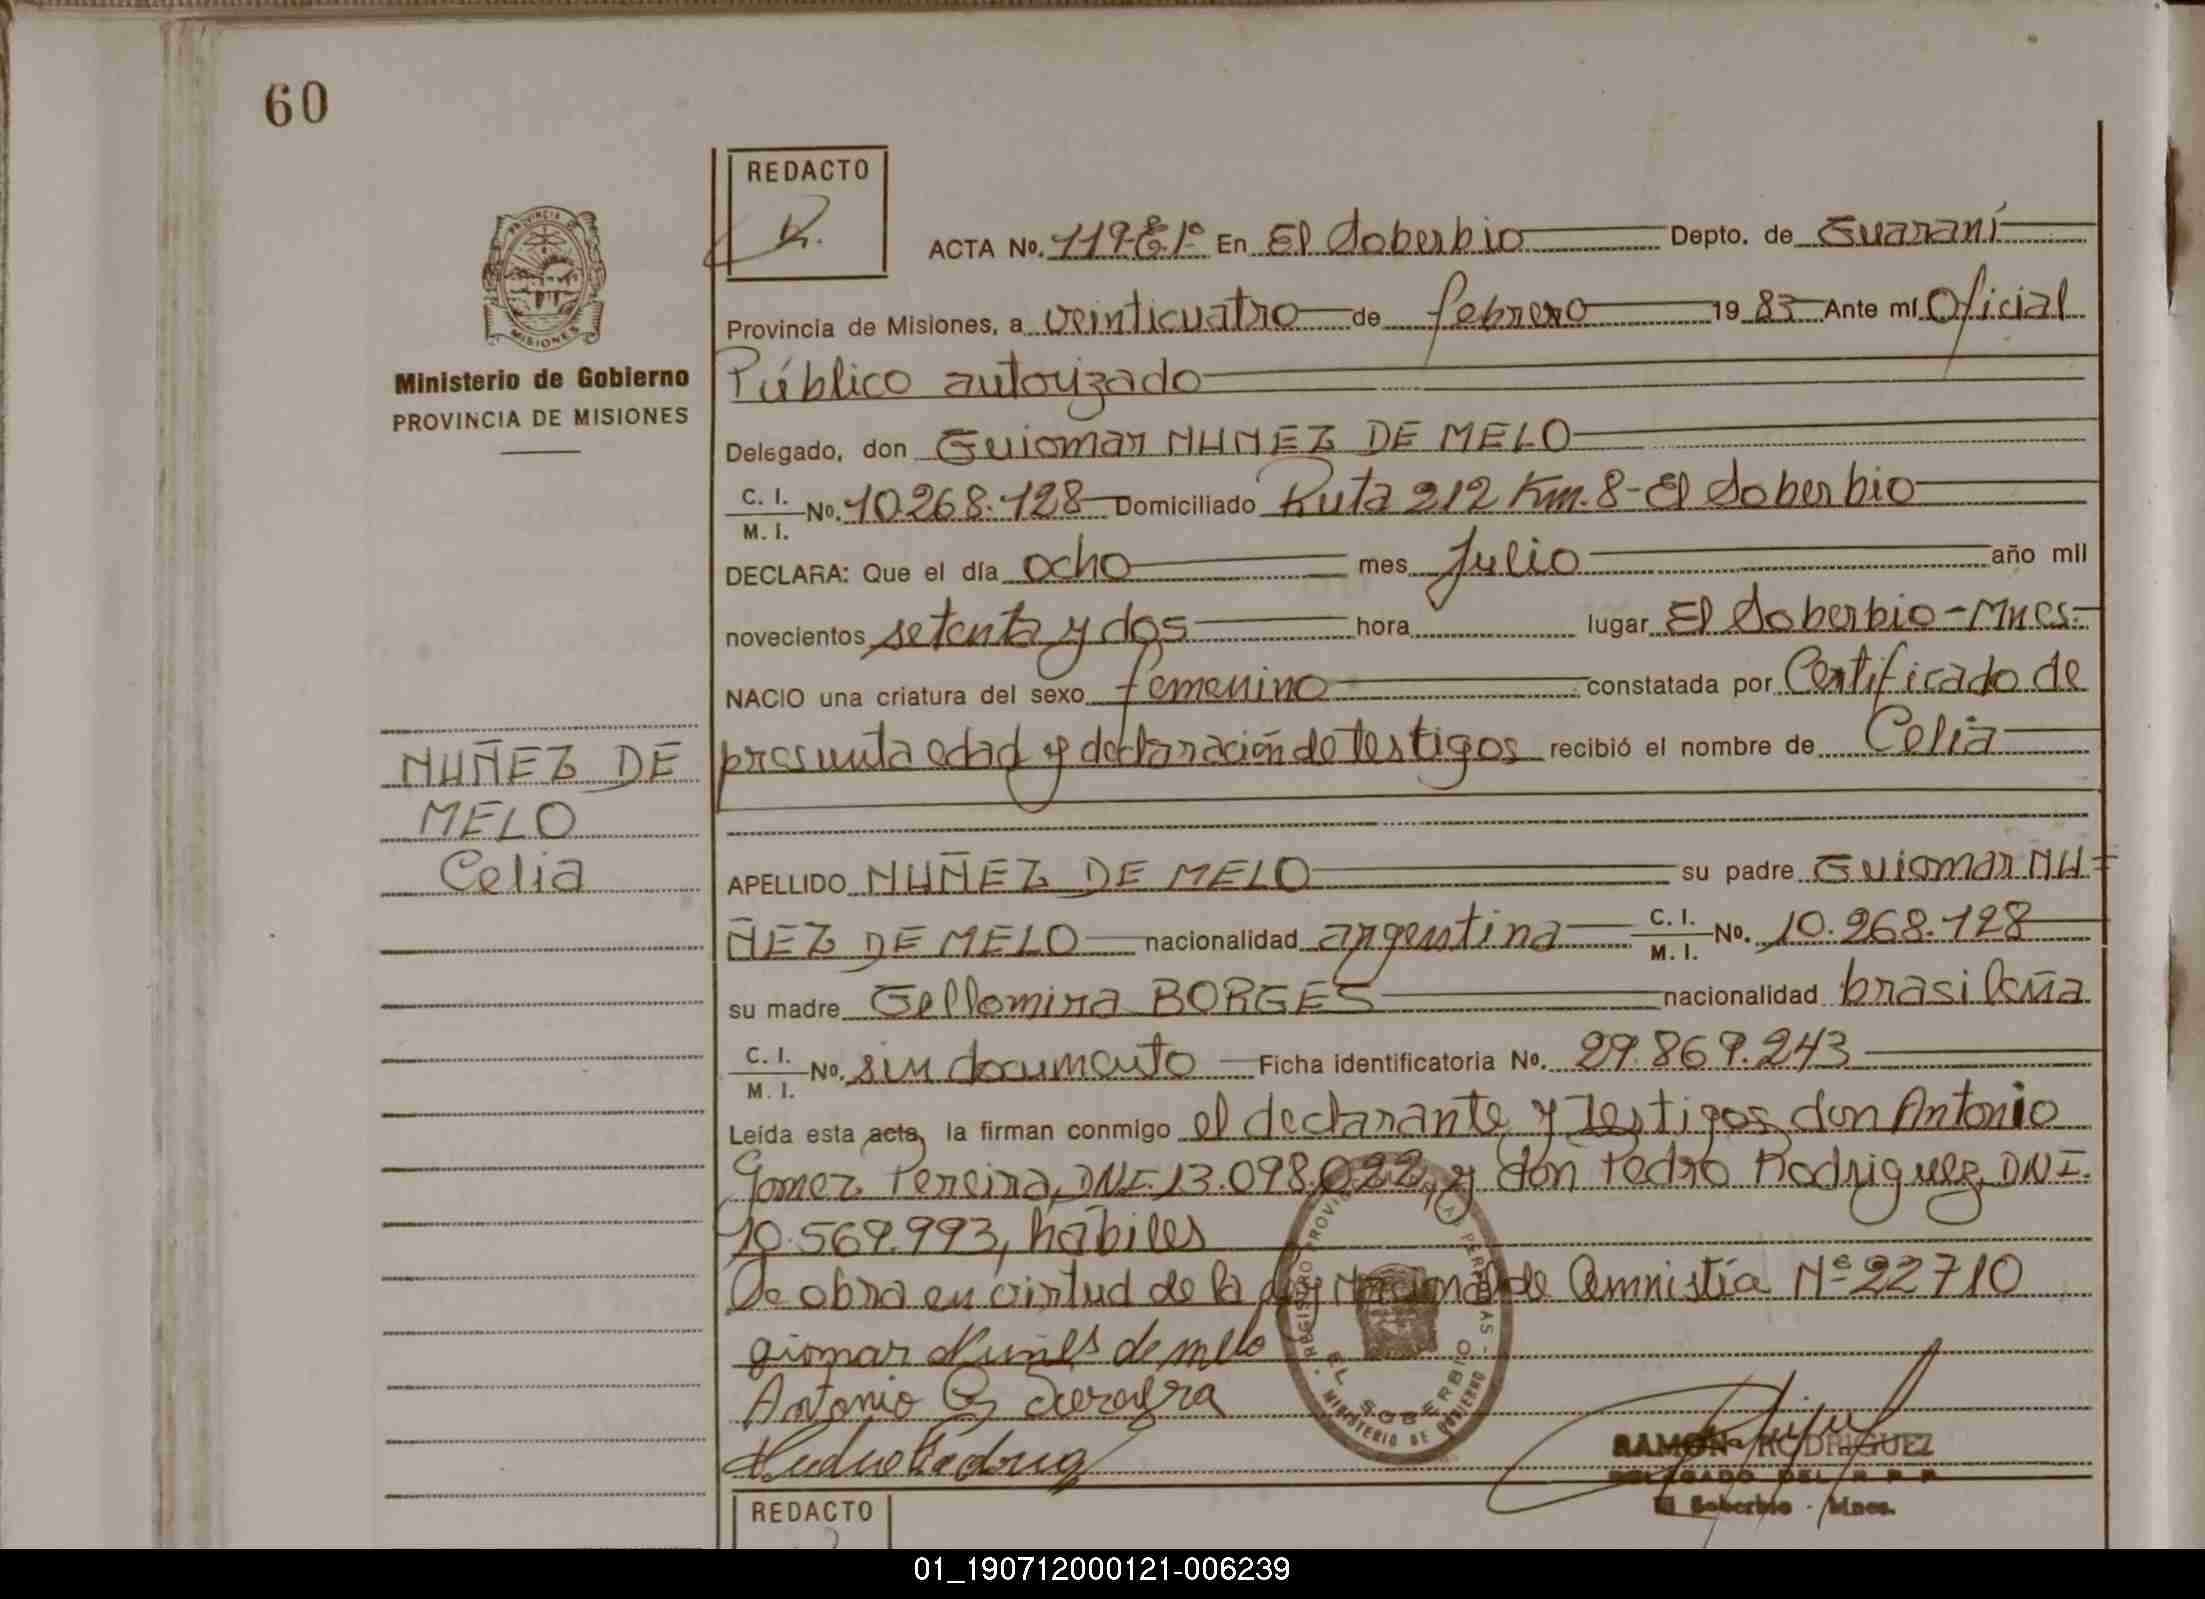 60
REDACTO
R.
ACTA No. 119-E.1º En El Soberbio Depto. de Guaraní
Provincia de Misiones, a veinticuatro de febrero 1983 Ante mí Oficial
Público autorizado
Delegado, don Guiomar NUNEZ DE MELO
C. I.
M. I. No. 10.268.128 Domiciliado Ruta 212 Km. 8-El Soberbio
DECLARA: Que el día ocho mes Julio año mil
novecientos setenta y dos hora lugar El Soberbio-Mnes-
NACIO una criatura del sexo femenino constatada por Certificado de
presunta edad y declaración de testigos recibió el nombre de Celia
APELLIDO NUÑEZ DE MELO su padre Guiomar NU-
ÑEZ DE MELO nacionalidad argentina C. I.
M. I. No. 10.268.128
su madre Gellomira BORGES nacionalidad brasileña
C. I.
M. I. No. sin documento Ficha identificatoria No. 29.869.243
Leída esta acta, la firman conmigo el declarante y testigos don Antonio
Gomez Pereira, DNI. 13.098.022, y don Pedro Rodriguez, DNI.
10.569.993, hábiles
Se obra en virtud de la ley Nacional de Amnistía Nº 22710
giomar Nunes de melo
Antonio G
RAMON RODRIGUEZ
DELEGADO DEL R. P. P.
El Soberbio - Mnes.
REGISTRO PROVINCIAL PERSONAS
EL SOBERBIO
MINISTERIO DE GOBIERNO
PROVINCIA DE
MISIONES
Ministerio de Gobierno
PROVINCIA DE MISIONES
NUÑEZ DE
MELO
Celia
REDACTO
01_190712000121-006239